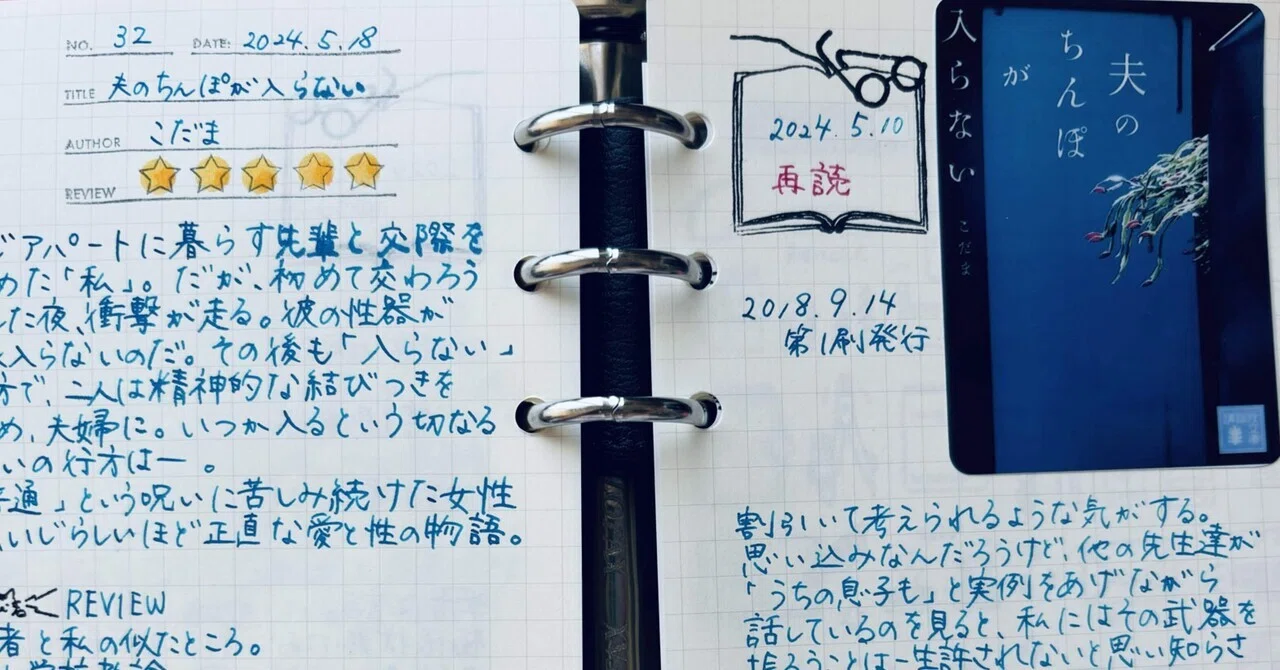 NO. 32 DATE: 2024.5.18
TITLE 夫のちんぽが入らない
AUTHOR こだま
REVIEW
じアパートに暮らす先輩と交際を
めた「私」。だが、初めて交わろう
した夜、衝撃が走る。彼の性器が
入らないのだ。その後も「入らない」
方で、二人は精神的な結びつきを
め、夫婦に。いつか入るという切なる
いの行方は―。
通」という呪いに苦しみ続けた女性
いじらしいほど正直な愛と性の物語。
REVIEW
者と私の似たところ。
2024.5.10
再読
2018.9.14
第1刷発行
夫の
ちんぽ
が
入らない
こだま
割引いて考えられるような気がする。
思い込みなんだろうけど、他の先生達が
「うちの息子も」と実例をあげながら
話しているのを見ると、私にはその武器を
ことは一生許されないと思い知らさ